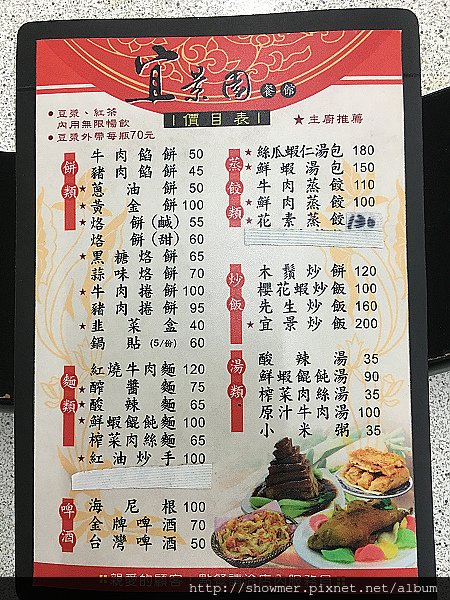 宜景園 餐館
價目表
●豆漿、紅茶
內用無限暢飲
●豆漿外帶每瓶70元
★主廚推薦
餅類
牛肉餡餅 50
豬肉餡餅 45
★蔥油餅 50
★黃金餅 100
★烙餅(鹹) 55
烙餅(甜) 60
★黑糖烙餅 65
蒜味烙餅 70
★牛肉捲餅 100
豬肉捲餅 95
★韭菜盒 40
鍋貼(5/份) 60
麵類
紅燒牛肉麵 120
★醡醬麵 75
★酸辣麵 65
★鮮蝦餛飩麵 100
榨菜肉絲麵 65
★紅油炒手 100
啤酒
海尼根 100
金牌啤酒 70
台灣啤酒 50
蒸餃類
★絲瓜蝦仁湯包 180
★鮮蝦湯包 150
★牛肉蒸餃 110
★鮮蝦蒸餃 180
★花素蒸餃 130
炒飯
木鬚炒餅 120
櫻花蝦炒飯 100
先生炒飯 160
★宜景炒飯 200
湯類
酸辣湯 35
鮮蝦餛飩湯 90
榨菜肉絲湯 35
原汁牛肉湯 100
小米粥 35
http://showmer.pixnet.net/album